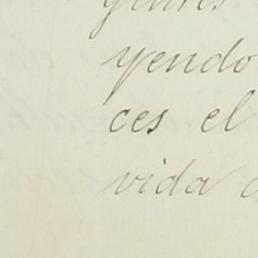 yendo
ces el
vida